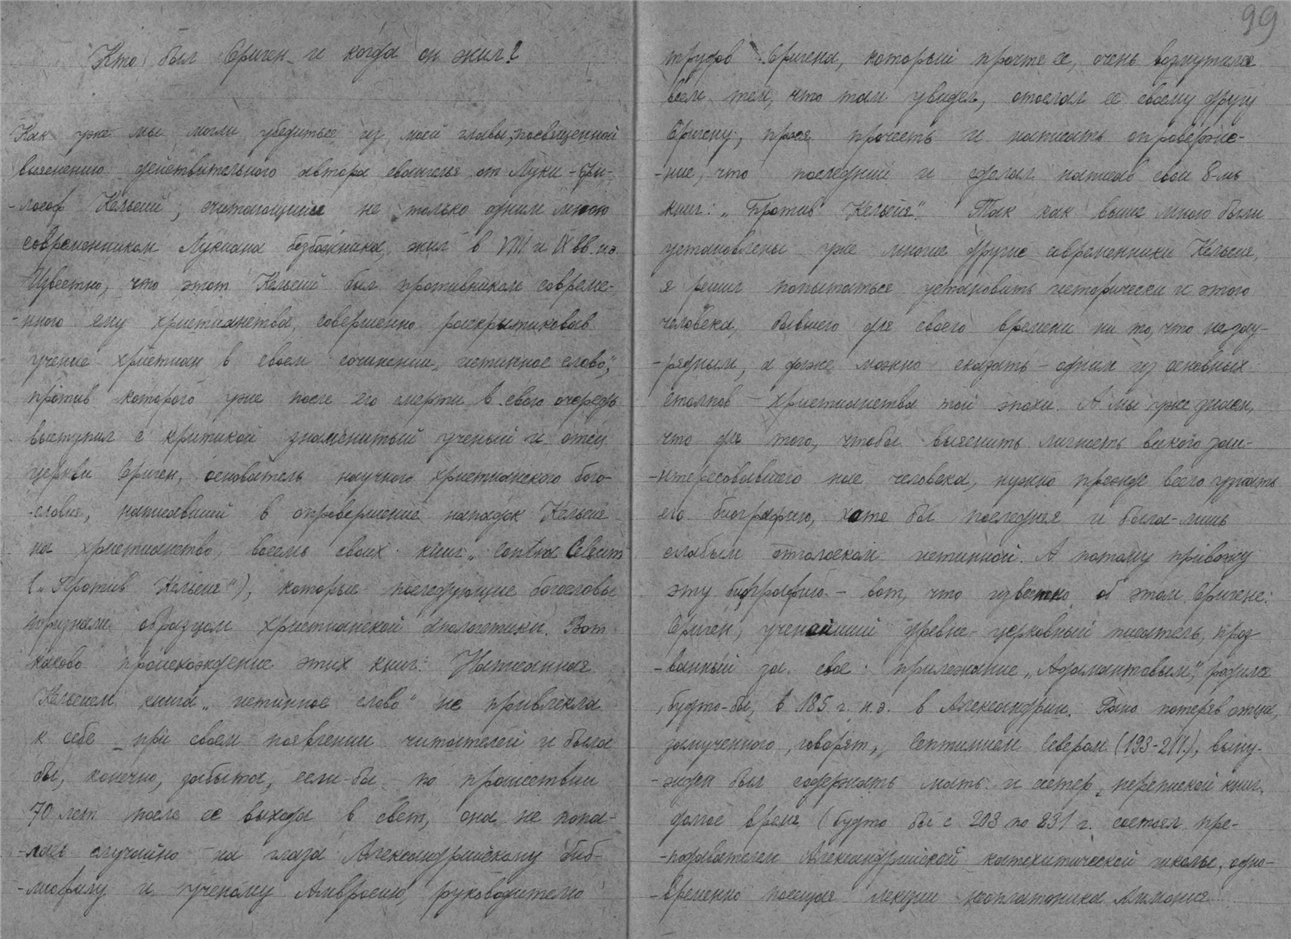 Кто был Ориген и когда он жил?
Как уже мы могли убедиться из моей главы, посвященной
выяснению действительного автора евангелья от Луки - Фи-
-лософ Кельсий, считающийся не только одним мною
современником Лукиана безбожника, жил в VIII и IX вв. н.э.
Известно, что этот Кельсий был противником совреме-
-нного ему христианства, совершенно раскритиковав
учение христиан в своем сочинении „истинное слово",
против которого, уже после его смерти в свою очередь
выступил с критикой знаменитый ученый и отец
церкви Ориген, основатель научного христианского бого-
-словия, написавший в опровержение нападок Кельсия
на христианство восемь своих книг „Contra Celsum
(„Против Кельсия"), которые последующие богословы
признали образцом христианской апологетики. Вот
каково происхождение этих книг: Написанная
Кельсием книга „истинное слово" не привлекла
к себе при своем появлении читателей и была
бы, конечно, забыта, если-бы по прошествии
70 лет после ее выхода в свет, она не попа-
-лась случайно на глаза Александрийскому биб-
-лиофилу и ученому Амвросию, руководителю
99
трудов Оригена, который прочтя ее, очень возмутился
всем тем, что там увидел, отослал ее своему другу
Оригену, прося прочесть и написать опроверже-
-ние, что последний и сделал, написав свои 8-мь
книг: „Против Кельсия". Так как выше мною были
установлены уже многие другие современники Кельсия,
я решил попытаться установить исторически и этого
человека, бывшего для своего времени не то, что незау-
-рядным, а даже можно сказать - одним из основных
столпов христианства той эпохи. А мы уже знаем,
что для того, чтобы выяснить личность всякого заи-
-нтересовавшего нас человека, нужно прежде всего изучить
его биографию, хотя бы последняя и была - лишь
слабым отголоском истинной. А потому привожу
эту биографию. - вот, что известно об этом Оригене:
Ориген, ученейший древне-церковный писатель, проз-
-ванный за свое прилежание „Адамантовым", родился
„будто-бы" в 185 г. н.э. в Александрии. Рано потеряв отца,
замученного, говорят, Септимием Севером (193-211), выну-
-жден был содержать мать и сестер перепиской книг,
долгое время (будто бы с 203 по 231 г. состоял пре-
-подавателем Александрийской катехитической школы, одно-
-временно посещая лекции неоплатоника Аммония